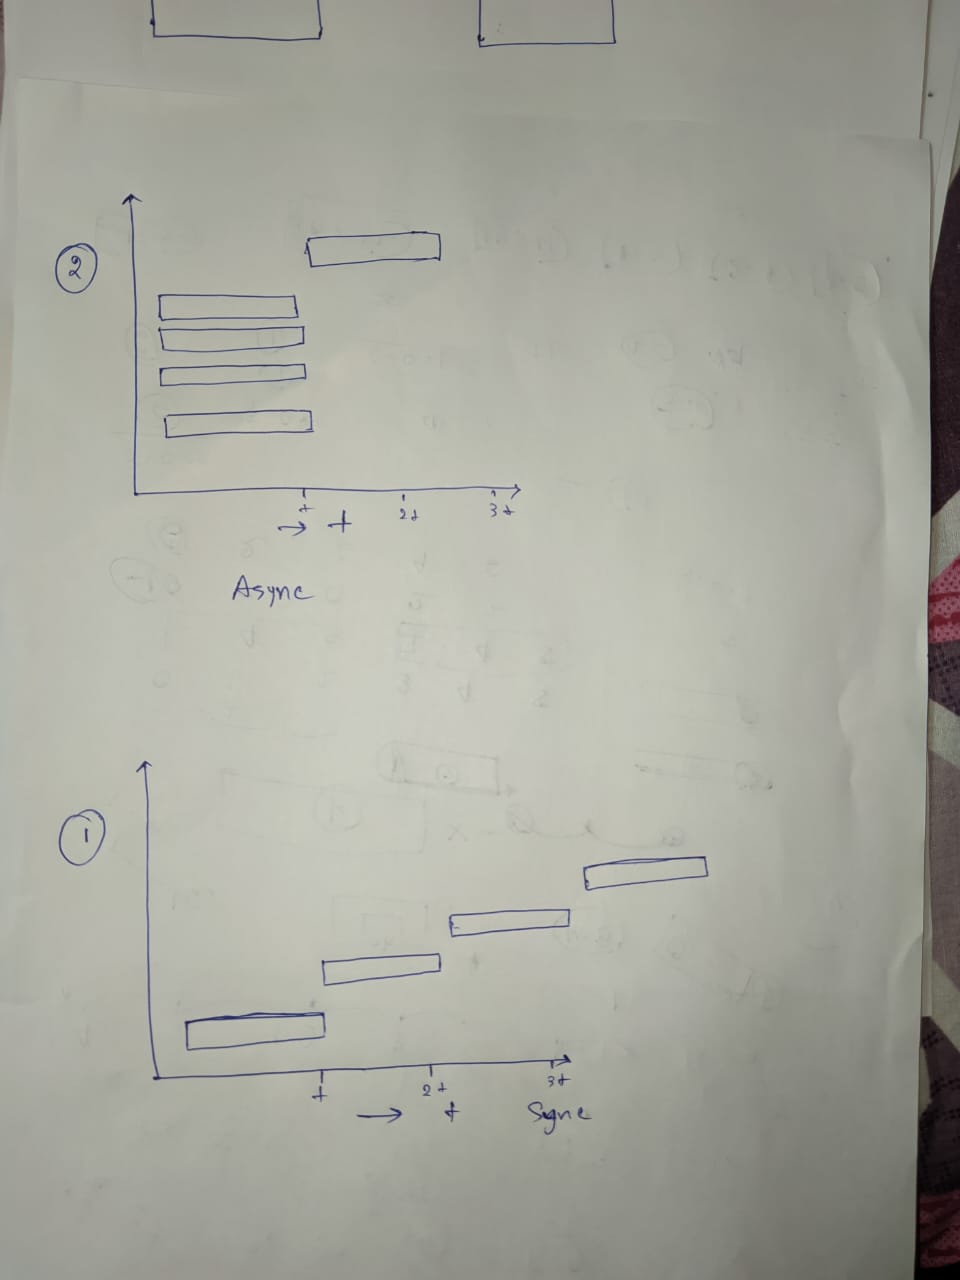 2
t 2t 3t
→ t
Async
1
t 2t 3t
→ t
Sync